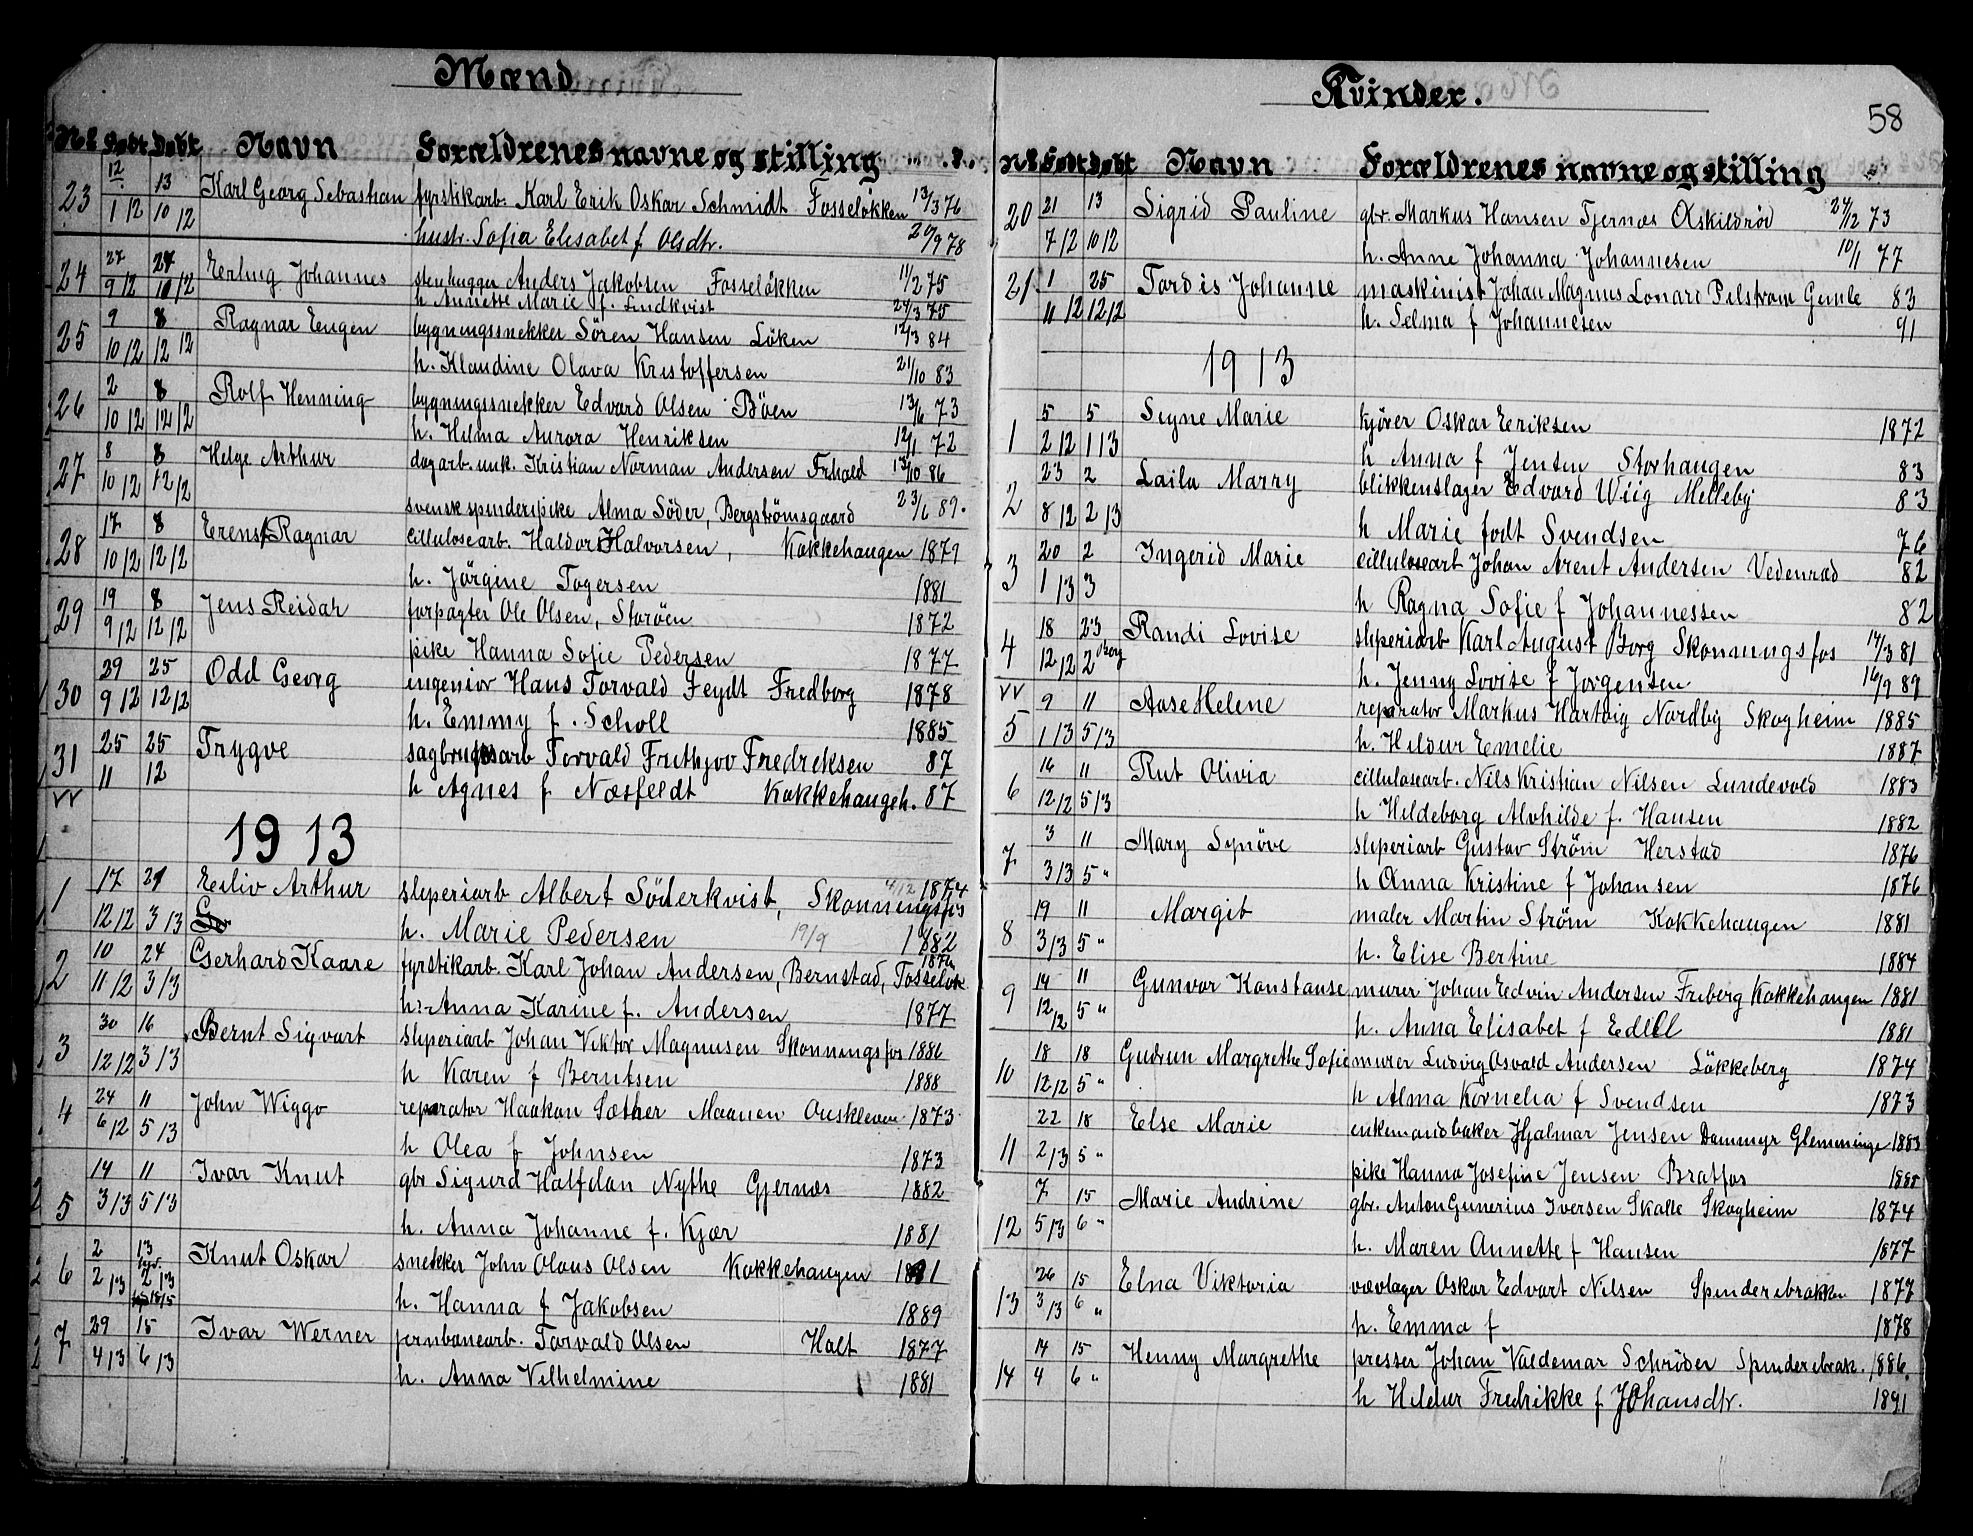 Mænd
Nr Født Døbt Navn Forældrenes navne og stilling
23 12/1 12 13/10 12 Karl Georg Sebastian fyrstikarb. Karl Erik Oskar Schmidt Fosseløkken 13/3 76
hustr. Sofia Elisabet f. Olsdtr. 20/9 78
24 27/9 12 27/10 12 Erling Johannes stenhugger Anders Jakobsen Fosseløkken 11/2 75
h Annette Marie f. Lindkvist 24/3 75
25 9/10 12 8/12 12 Ragnar Eugen bygningssnekker Sören Hansen Löken 12/3 84
h. Klaudine Olava Kristoffersen 21/10 83
26 2/10 12 8/12 12 Rolf Henning bygningssnekker Edvard Olsen Böen 13/6 73
h. Hilma Aurora Henriksen 12/1 72
27 8/10 12 8/12 12 Helge Arthur dagarb. unk. Kristian Norman Andersen Frhold 13/10 86
svensk spinderipike Alma Söder, Bergströmsgaard 23/6 89.
28 17/10 12 8/12 12 Erenst Ragnar cillulosearb. Haldor Halvorsen, Kokkehaugen 1879
h. Jörgine Togersen 1881
29 19/9 12 8/12 12 Jens Reidar forpagter Ole Olsen, Storöen 1872
pike Hanna Sofie Pedersen 1877
30 29/9 12 25/12 12 Odd Georg ingeniør Hans Torvald Feydt Fredborg 1878
h. Emmy f. Scholl 1885
31 25/11 25/12 Trygve sagbrugsarb Torvald Frithjov Fredriksen 87
h Agnes f Næsfeldt Kokkehaugen. 87
1913
1 17/12 12 24/3 13 Eiliv Arthur sliperiarb Albert Söderkvist, Skonningsfos 4/12 1874
h. Marie Pedersen 19/9 1882
2 10/11 12 24/3 13 Gerhard Kaare fyrstikarb. Karl Johan Andersen, Bernstad, Fosseløk
h. Anna Karine f. Andersen 1877
3 30/12 12 16/3 13 Bernt Sigvart sliperiarb Johan Viktor Magnusen Skonningsfos 1886
h Karen f Berntsen 1888
4 24/6 12 11/5 13 John Wiggo reparatør Haakon Sæther Maanen 1873
h Olea f Johnsen 1873
5 14/3 13 11/5 13 Ivar Knut gbr Sigurd Halfdan Nythe Gjernæs 1882
h. Anna Johanne f. Kjær 1881
6 2/2 13 13/2 13 Knut Oskar snekker John Olaus Olsen Kokkehaugen 1881
h. Hanna f Jakobsen 1889
7 29/4 13 15/6 13 Ivar Werner jernbanearb. Torvald Olsen Holt 1877
h. Anna Vilhelmine 1881
Kvinder.
58
Nr Født Døbt Navn Forældrenes navne og stilling
20 21/7 12 13/10 12 Sigrid Pauline gbr. Markus Hansen Tjernæs Askildrød 24/12 73
h. Anne Johanna Johannesen 10/1 77
21. 1/11 12 25/12 12 Tordis Johanne maskinist Johan Magnus Lonard Pilstrøm Gimle 83
h. Selma f Johannesen 91
1913
1 5/2 12 5/1 13 Signe Marie kjører Oskar Eriksen 1872
h Anna f Jensen Storhaugen 83
2 23/8 12 2/2 13 Laila Marry blikkenslager Edvard Wiig Melleby 83
h Marie født Svendsen 76
3 20/1 13 2/3 Ingerid Marie cilluloseart Johan Arent Andersen Vedenrød 82
h Ragna Sofie f Johannessen 82
4 18/12 12 23/2 Borg Randi Lovise sliperiarb Karl August Borg Skonningsfos 14/3 81
h. Jenny Lovise f Jørgensen 16/9 89
5 9/1 13 11/5 13 Aase Helene reparatør Markus Hartvig Nordby Skogheim 1885
h. Hildur Emelie 1887
6 16/12 12 11/5 13 Rut Olivia cilluloseart. Nils Kristian Nilsen Lundevold 1883
h Hildeborg Alvhilde f. Hansen 1882
7 3/3 13 11/5 " Mary Synöve sliperiarb Gustav Ström Herstad 1876
h Anna Kristine f Johansen 1876
8 19/3 13 11/5 " Margit maler Martin Strøm Kokkehaugen 1881
h. Elise Bertine 1884
9 14/12 12 11/5 " Gunvor Konstanse murer Johan Edvin Andersen Friberg Kokkehaugen 1881
h. Anna Elisabet f Edell 1881
10 18/12 12 18/5 " Gudrun Margrethe Sofie murer Ludvig Osvald Andersen Lökkeberg 1874
h Alma Kornelia f Svendsen 1873
11 22/2 13 18/5 " Else Marie enkemand baker Hjalmar Jensen Dammyr Glemminge 1883
pike Hanna Josefine Jensen Bratfos 1885
12 7/5 13 15/6 " Marie Andrine gbr. Anton Gunerius Iversen Skolle Skogheim 1874
h. Maren Annette f Hansen 1877
13 26/3 13 15/6 " Elna Viktoria vævlager Oskar Edvart Nilsen Spinderebrakken 1877
h. Emma f 1878
14 14/4 15/6 " Henny Margrethe presser Johan Valdemar Schrøder Spinderebrak. 1886.
h Hildur Fredrikke f Johansdtr. 1891